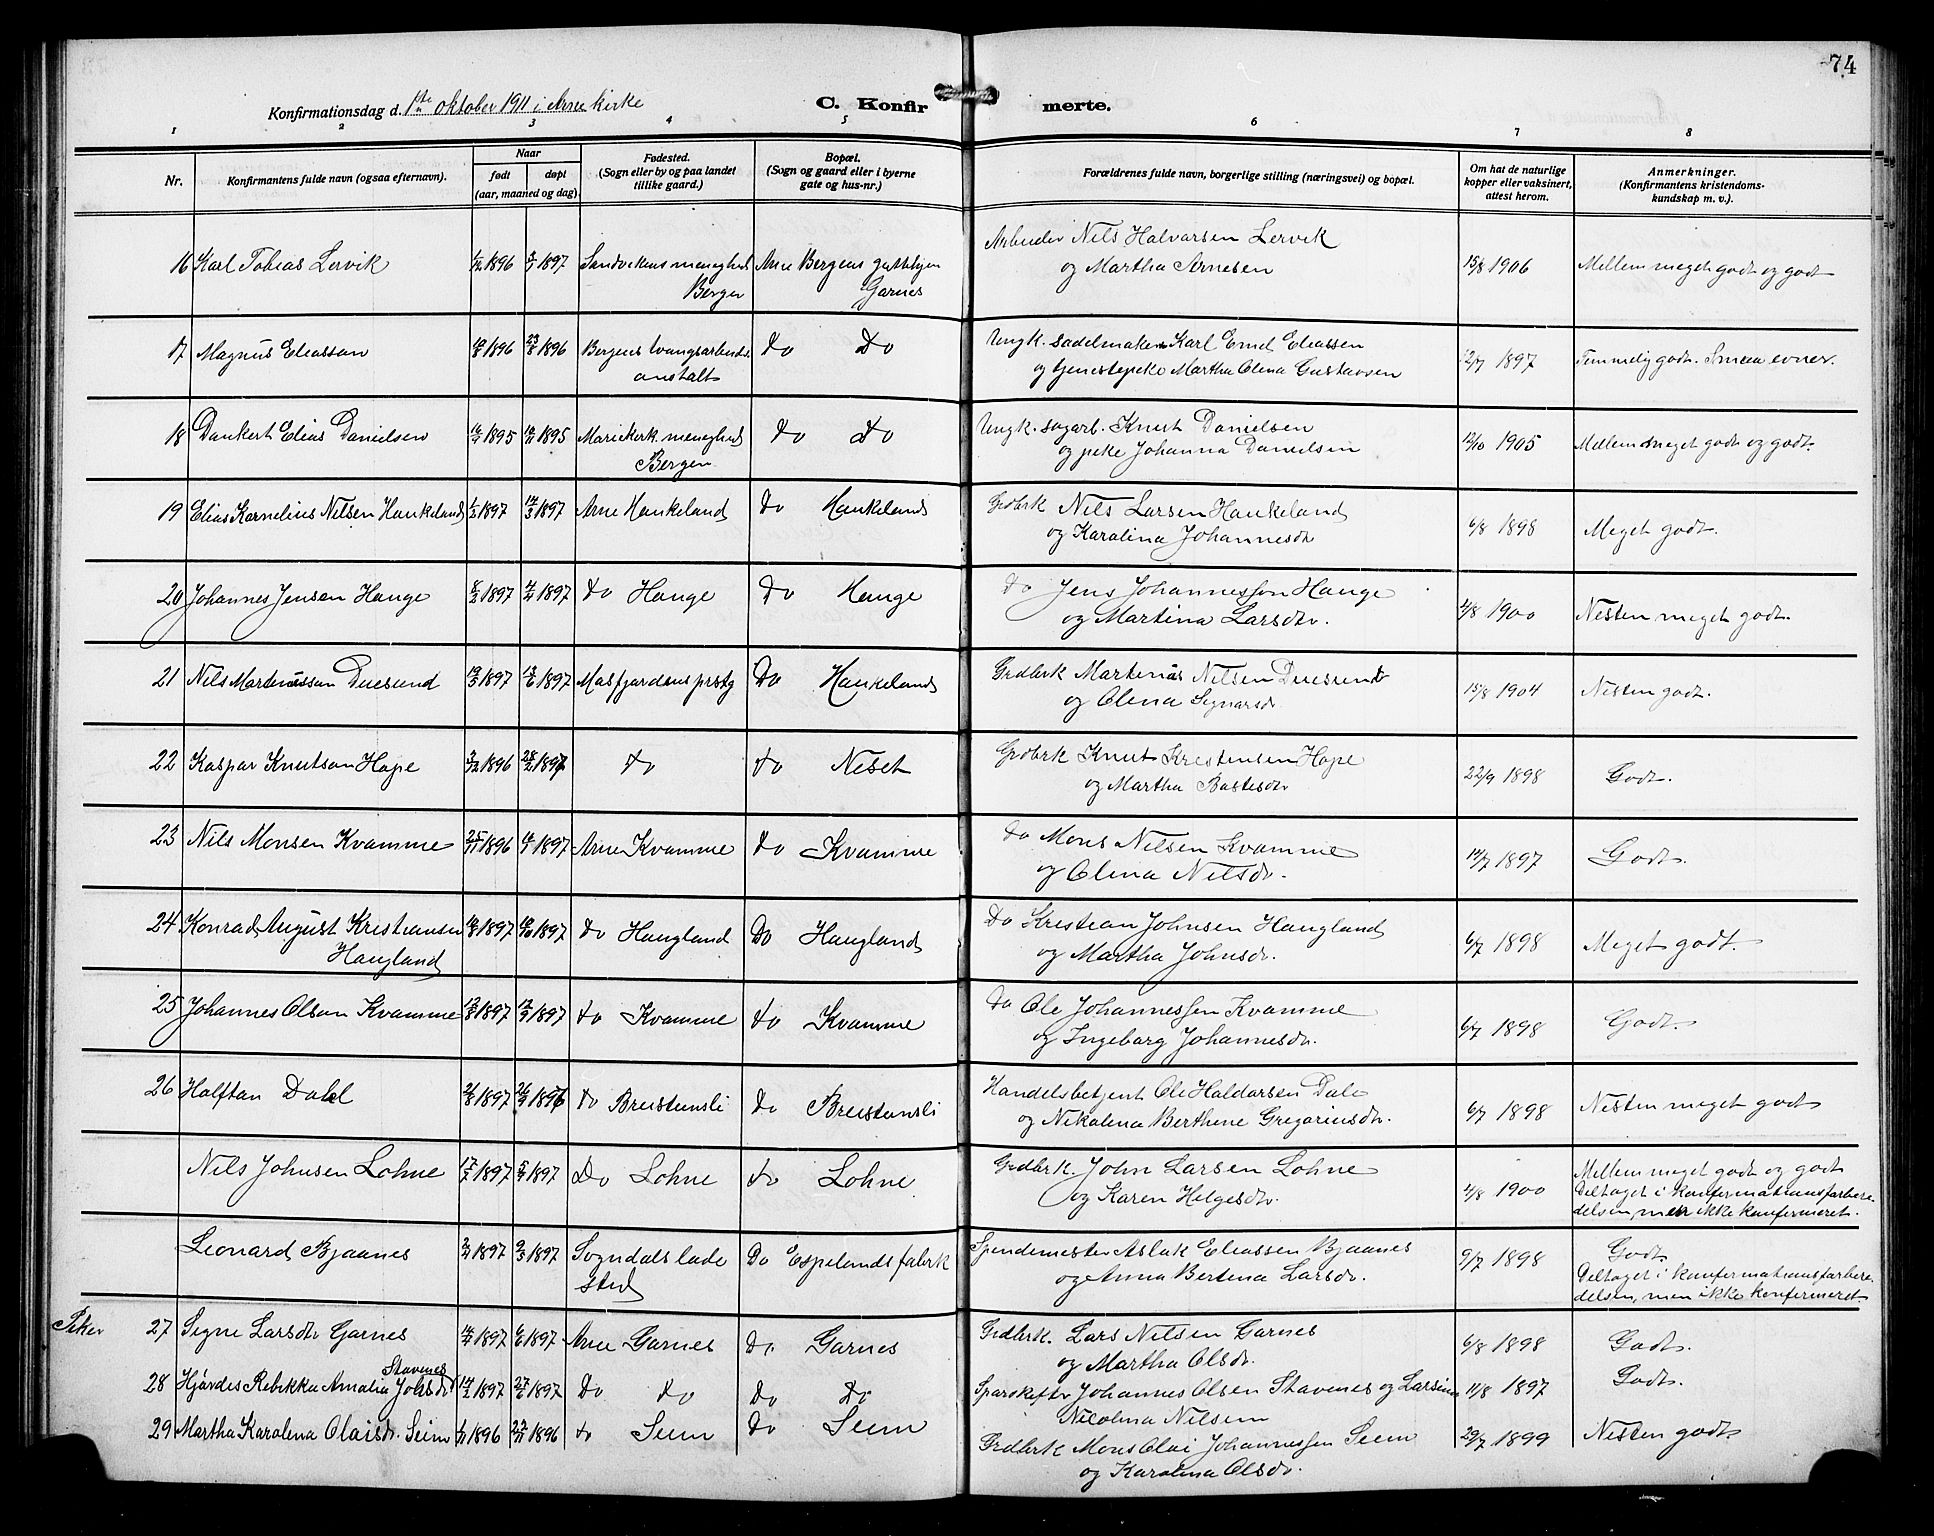 74
Konfirmationsdag d. 1ste oktober 1911 i Arne kirke C. Konfirmerte.
1 2 3 4 5 6 7 8
Nr. Konfirmantens fulde navn (ogsaa efternavn). Naar født døpt (aar, maaned og dag) Fødested. (Sogn eller by og paa landet tillike gaard.) Bopæl. (Sogn og gaard eller i byerne gate og hus-nr.) Forældrenes fulde navn, borgerlige stilling (næringsvei) og bopæl. Om hat de naturlige kopper eller vaksinert, attest herom. Anmerkninger. (Konfirmantens kristendomskundskap m. v.).
16 Karl Tobias Lervik 1896 1897 Sandvikens menighed Bergen Arne Bergens guttehjem Garnes Arbeider Nils Halvarsen Lervik og Martha Arnesen 15/8 1906 Mellem meget godt og godt
17 Magnus Eliassen 1896 23/8 1896 Bergens tvangsarbeidsanstalt Do Do Ungk. sadelmaker Karl Emil Eliassen og tjenestepike Martha Olena Gustavsen 12/7 1897 Temmelig godt. Smaa evner.
18 Dankert Elias Danielsen 1895 1895 Mariekirk. menighed Bergen Do Do Ungk. sagarb. Knut Danielsen og pike Johanna Danielsen 12/10 1905 Mellem meget godt og godt.
19 Elias Kornelius Nilsen Haukeland 1/2 1897 14/3 1897 Arne Haukeland Do Haukeland Grdbrk Nils Larsen Haukeland og Karolina Johannesdr 6/8 1898 Meget godt.
20 Johannes Jensen Hauge 8/2 1897 1897 Do Hauge Do Hauge Do Jens Johannessen Hauge og Martina Larsdtr. 4/8 1900 Nesten meget godt.
21 Nils Martinussen Duesund 19/3 1897 1897 Masfjordens prstg Do Haukeland Grdbrk Martinus Nilsen Duesund og Olena 15/8 1904 Nesten godt.
22 Kaspar Knutsen Hope 1896 28/2 1897 Do Do Neset Grdbrk Knut Kristensen Hope og Martha Bastesdtr 22/9 1898 Godt.
23 Nils Monsen Kvamme 25/11 1896 1897 Arne Kvamme Do Kvamme Do Mons Nilsen Kvamme og Olena Nilsdr. 14/7 1897 Godt.
24 Konrad August Kristiansen Haugland 1897 1897 Do Haugland Do Haugland Do Kristian Johnsen Haugland og Martha Johnsdr. 6/7 1898 Meget godt.
25 Johannes Olsen Kvamme 1897 1897 Do Kvamme Do Kvamme Do Ole Johannessen Kvamme og Ingeborg Johannesdr. 6/7 1898 Godt.
26 Halfdan Dahl 1897 Do Breistensli Do Breistensli Handelsbetjent Ole Haldorsen Dale og Nikolena Berthine Gregoriusdtr. 6/7 1898 Nesten meget godt
Nils Johnsen Lohne 1897 1897 Do Lohne Do Lohne Grdbrk. John Larsen Lohne og Karen Helgesdtr. 4/8 1900 Mellem meget godt og godt Deltaget i konfirmationsforberedelsen, men ikke konfirmeret.
Leonard Bjaanes 1897 1897 Sogndals ladested Do Espelands fabrk Spindemester Aslak Eliassen Bjaanes og Anna Bertina Larsdr. 9/7 1898 Godt Deltaget i konfirmationsforberedelsen, men ikke konfirmeret
Piker 27 Signe Larsdtr Garnes 1897 1897 Arne Garnes Do Garnes Grdbrk. Lars Nilsen Garnes og Martha Olsdr. 6/8 1898 Godt.
28 Hjørdis Rebekka Amalia Johsdr Stavenes 1897 1897 Do Do Do Do Johannes Olsen Stavenes og Larsina Nicolina Nilsen 11/8 1897 Godt.
29 Martha Karolina Olaisdr. Seim 1896 1896 Do Seim Do Seim Grdbrk Mons Olai Johannessen Seim og Karolina Olsdr. 29/7 1899 Nesten godt